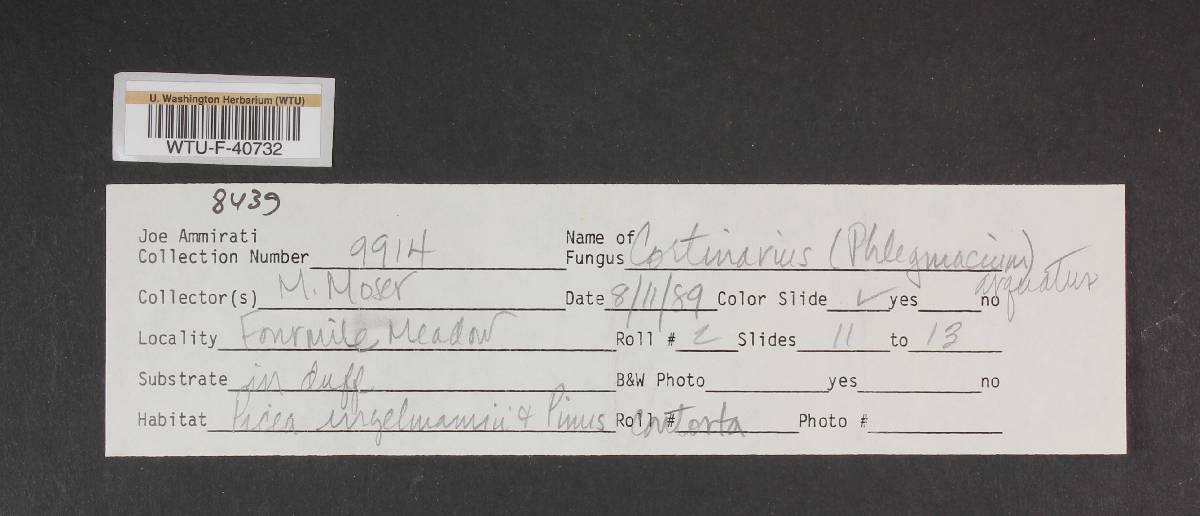 U. Washington Herbarium (WTU)
WTU-F-40732
8439
Joe Ammirati
Collection Number 9914
Name of Fungus Cortinarius (Phlegmacium) arquatus
Collector(s) M. Moser Date 8/11/89 Color Slide ✓ yes no
Locality Fourmile Meadow Roll # 2 Slides 11 to 13
Substrate in duff B&W Photo yes no
Habitat Picea engelmannii & Pinus contorta Roll # Photo #